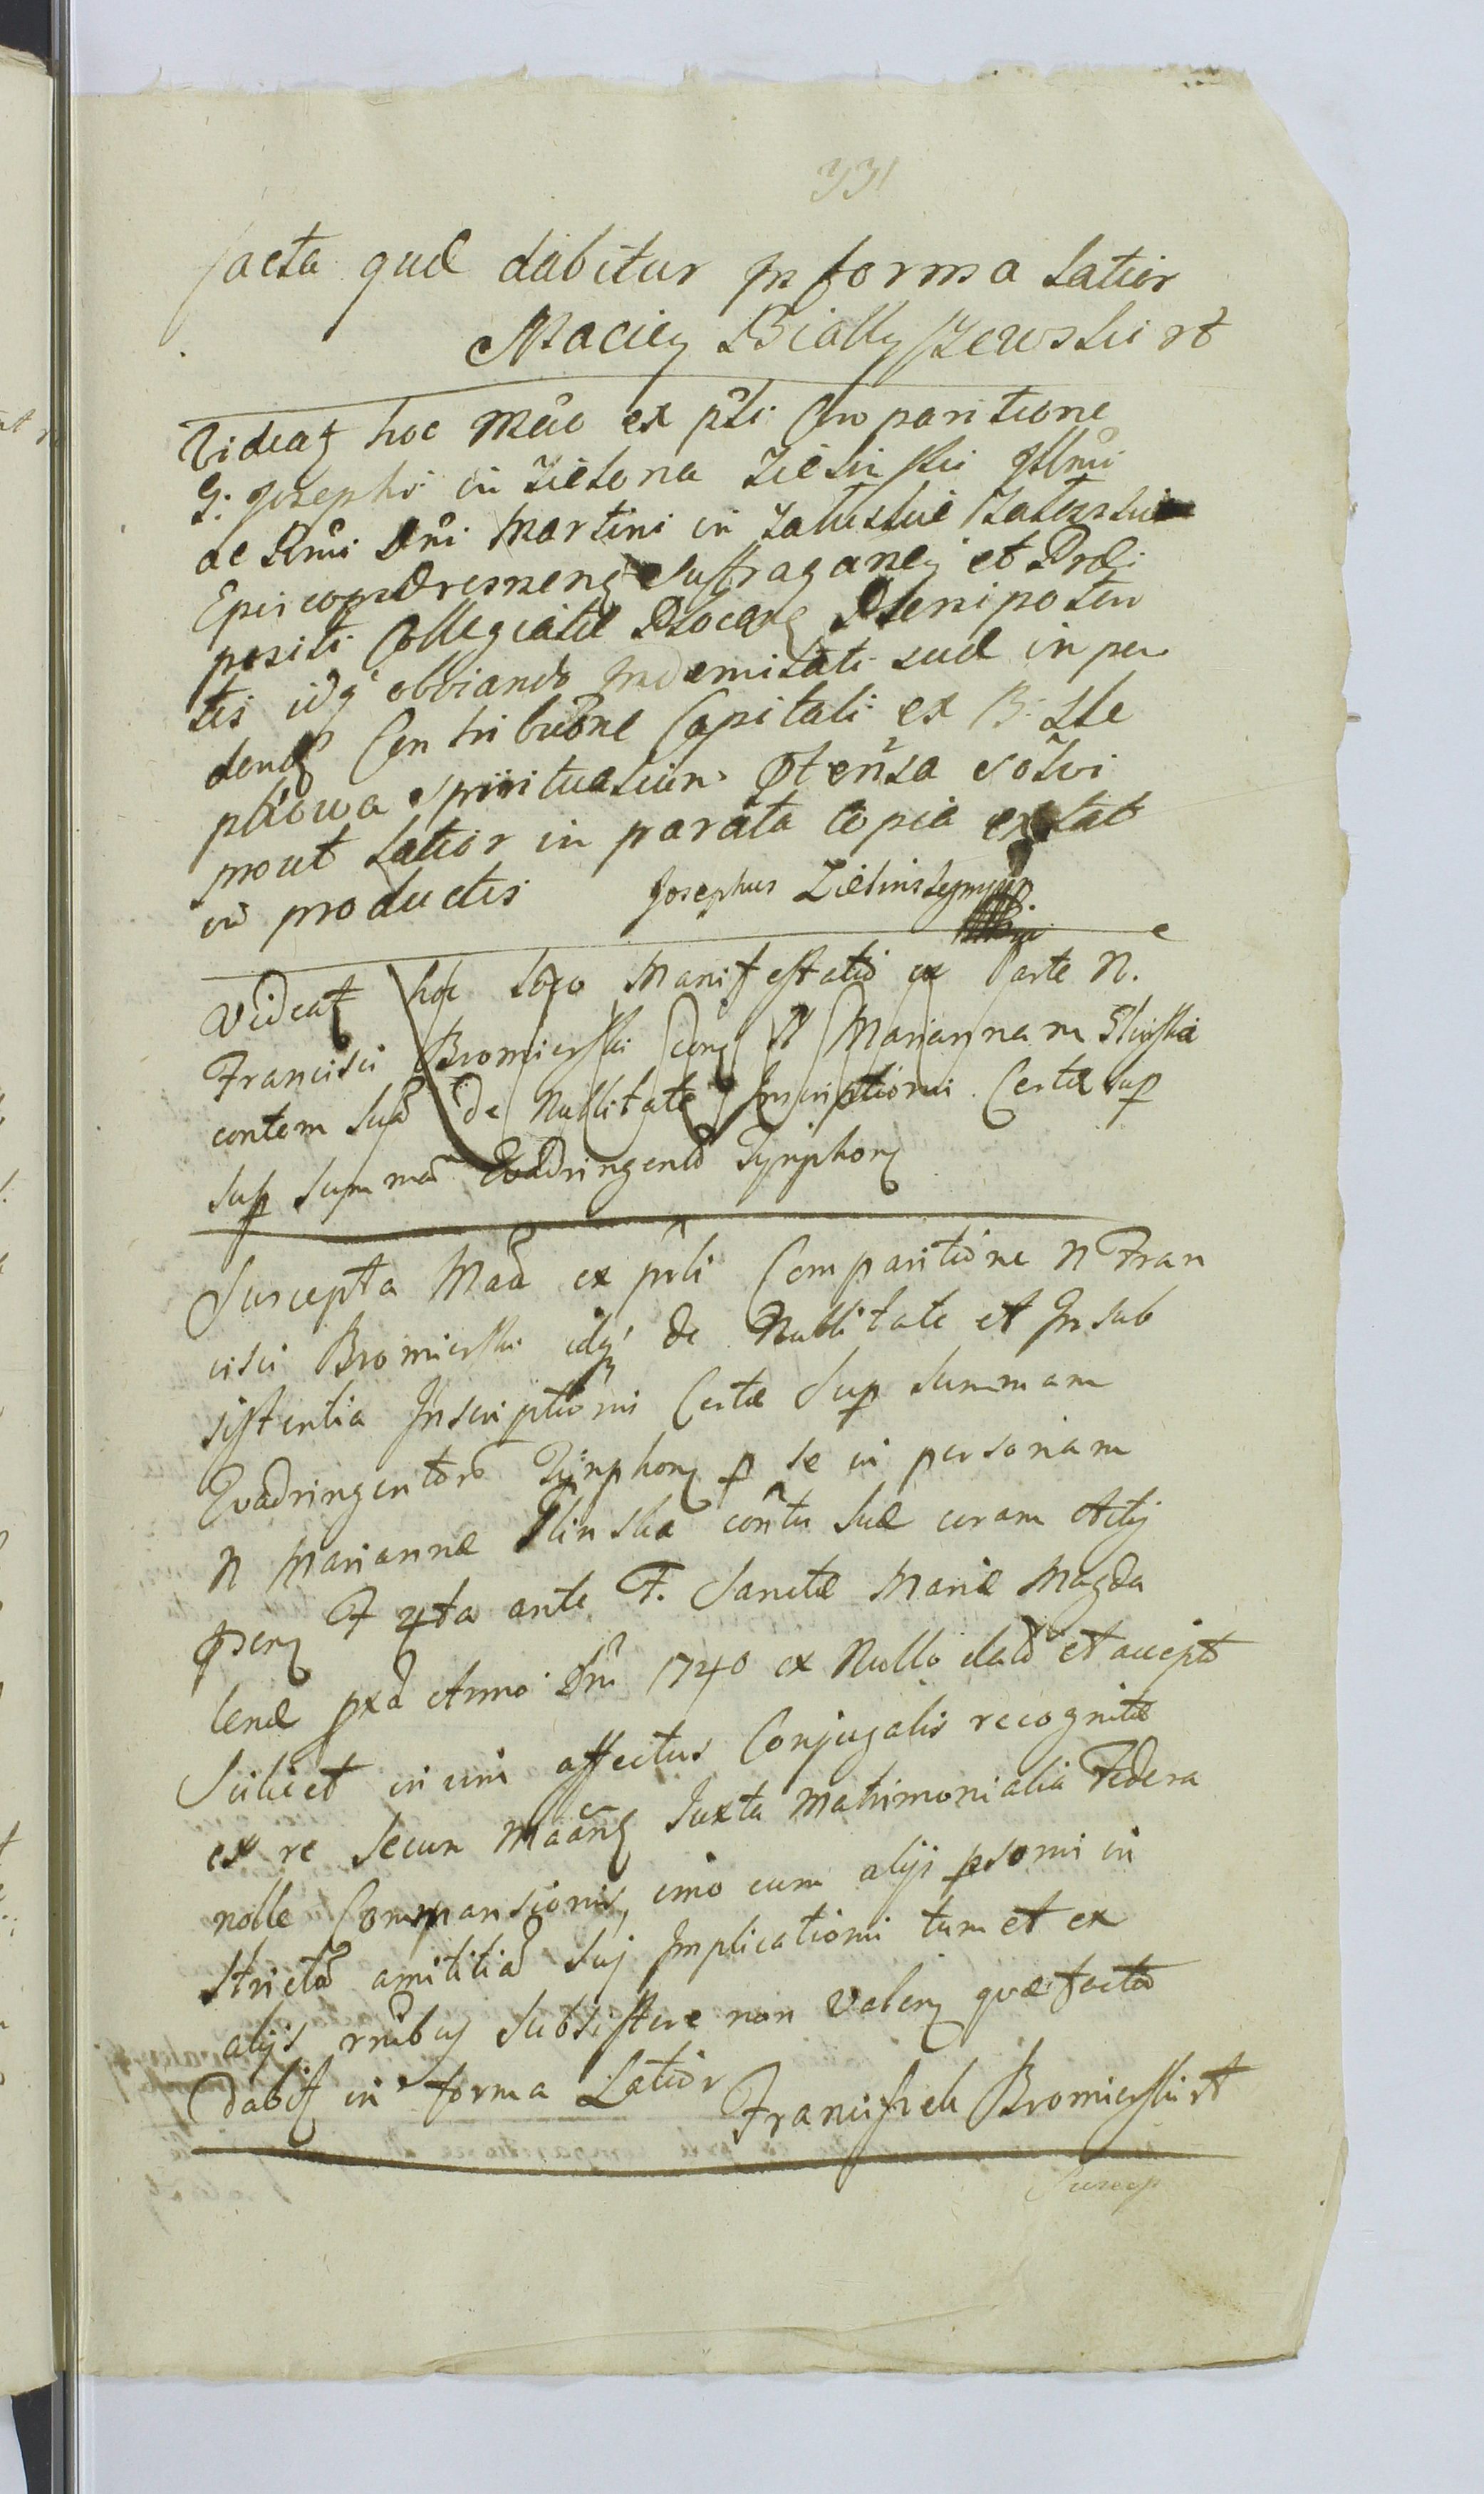 331
facta quæ dabitur in forma latior
Maciey Białłyszewski rt
Videatʒ hoc Mãe ex pñli Comparitione
G. Josephi in Zielona Zielinski Illmi
ac Rmi Dñi Martini in Załuskie Załuski
Episcopi Dresnenʒ Suffraganej et Præ
positi Collegiatæ Plocenʒ Plenipoten
tis idqʒ obviando Indemitati suæ in pen
denda Contributione Capitali ex B.
Spiritualium Ptensa solvi
prout latior in parata copia extat
in productis Josephus Zielinski mpp.
Videatʒ hoc loco Manifestatio ex Parte N.
Francisci Bromierski conʒ N Mariannam Glinska
contem suã de Nullitate Inscriptionis Certæ sup
sup summã Quadringentõ Tynphonʒ
Suscepta Mãa ex pñli Comparitione N Fran
cisci Bromierski idqʒ de Nullitate et Insub
sistentia Inscriptionis Certæ Sup Summam
Quadringentorõ Tynphonʒ p se in personam
N Mariannæ Glinska cõntis suæ coram Actis
psenʒ F 4ta ante F. Sanctæ Mariæ Magda
lenæ pxã Anno Dñi 1740 ex Nullo dato et accepto
Scilicet in vim affectus Conjugalis recognitæ
ex re secum Maãnʒ Juxta Matrimonialia Fædera
nolle Commansionis, imo cum alijs psonis in
strictã amititiã suj Implicationis tum et ex
alijs rñibus subsistere non valenʒ quæ facta
dabitʒ in forma Latior Franciszek Bromierski rt
Suscep